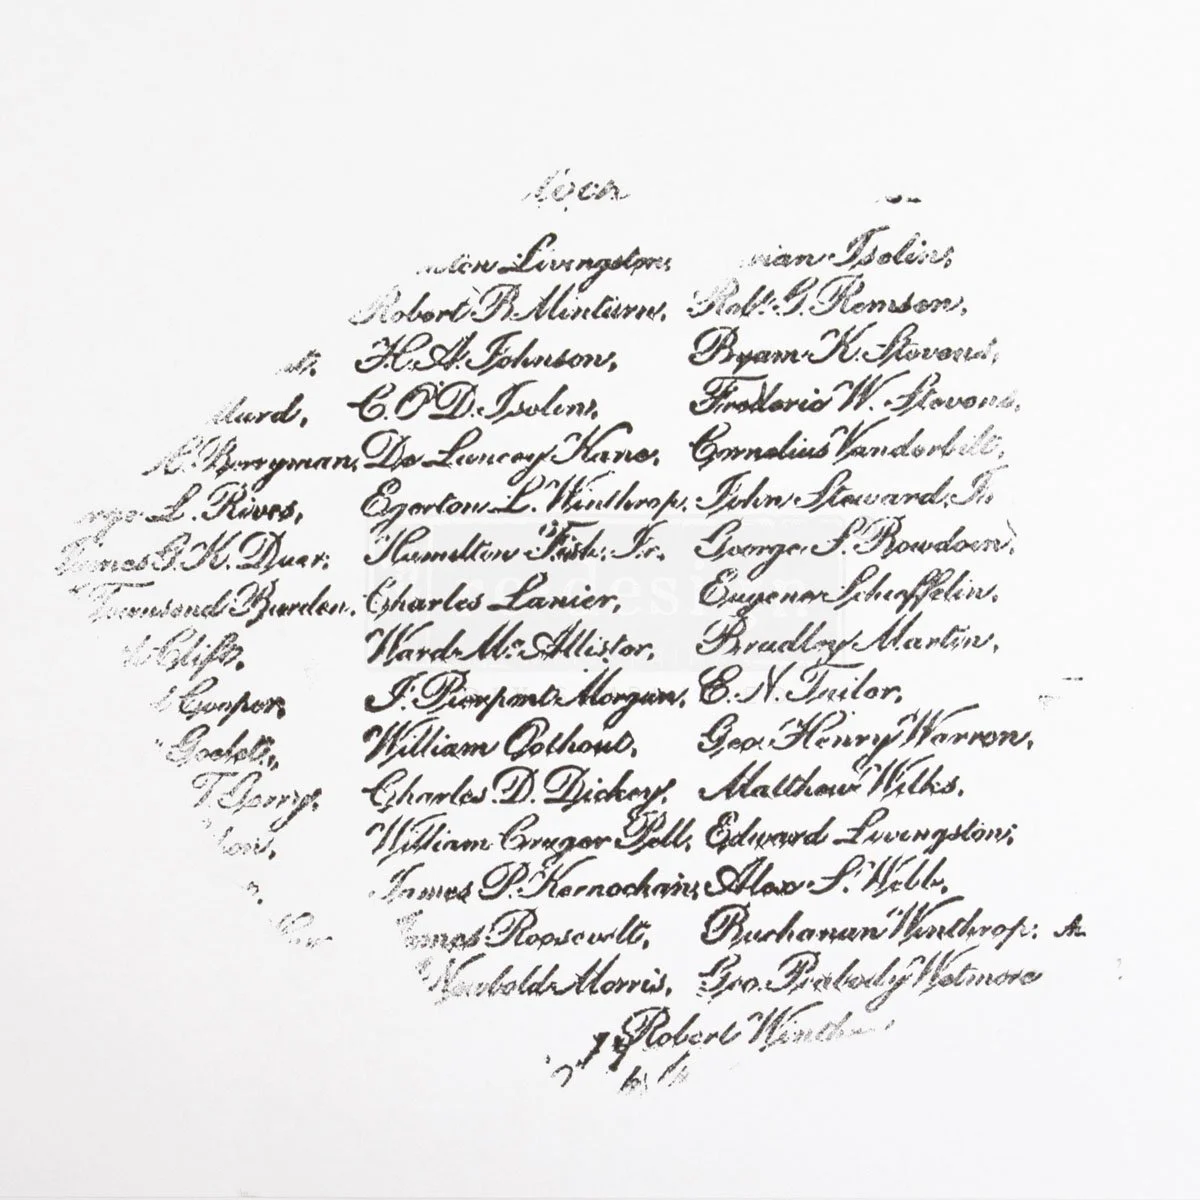 Livingston, Iselin,
Robert B. Minturn, Robt. G. Remsen,
H. A. Johnson, Byam K. Stevens,
C. O'D. Iselin, Frederic W. Stevens,
Berryman, De Lancey Kane, Cornelius Vanderbilt,
L. Rives, Egerton L. Winthrop, John Steward, Jr.
James G. K. Duer, Hamilton Fish, Jr. George S. Bowdoin,
Townsend Burden, Charles Lanier, Eugene Schieffelin,
Clift, Ward McAllister, Bradley Martin,
Cooper, J. Pierpont Morgan, E. N. Tailer,
Goelet, William Oothout, Geo. Henry Warren,
T. Gerry, Charles D. Dickey, Matthew Wilks,
William Cruger Pell, Edward Livingston,
James P. Kernochan, Alex S. Webb,
James Roosevelt, Buchanan Winthrop,
Newbold Morris, Geo. Peabody Wetmore
Robert
re·design